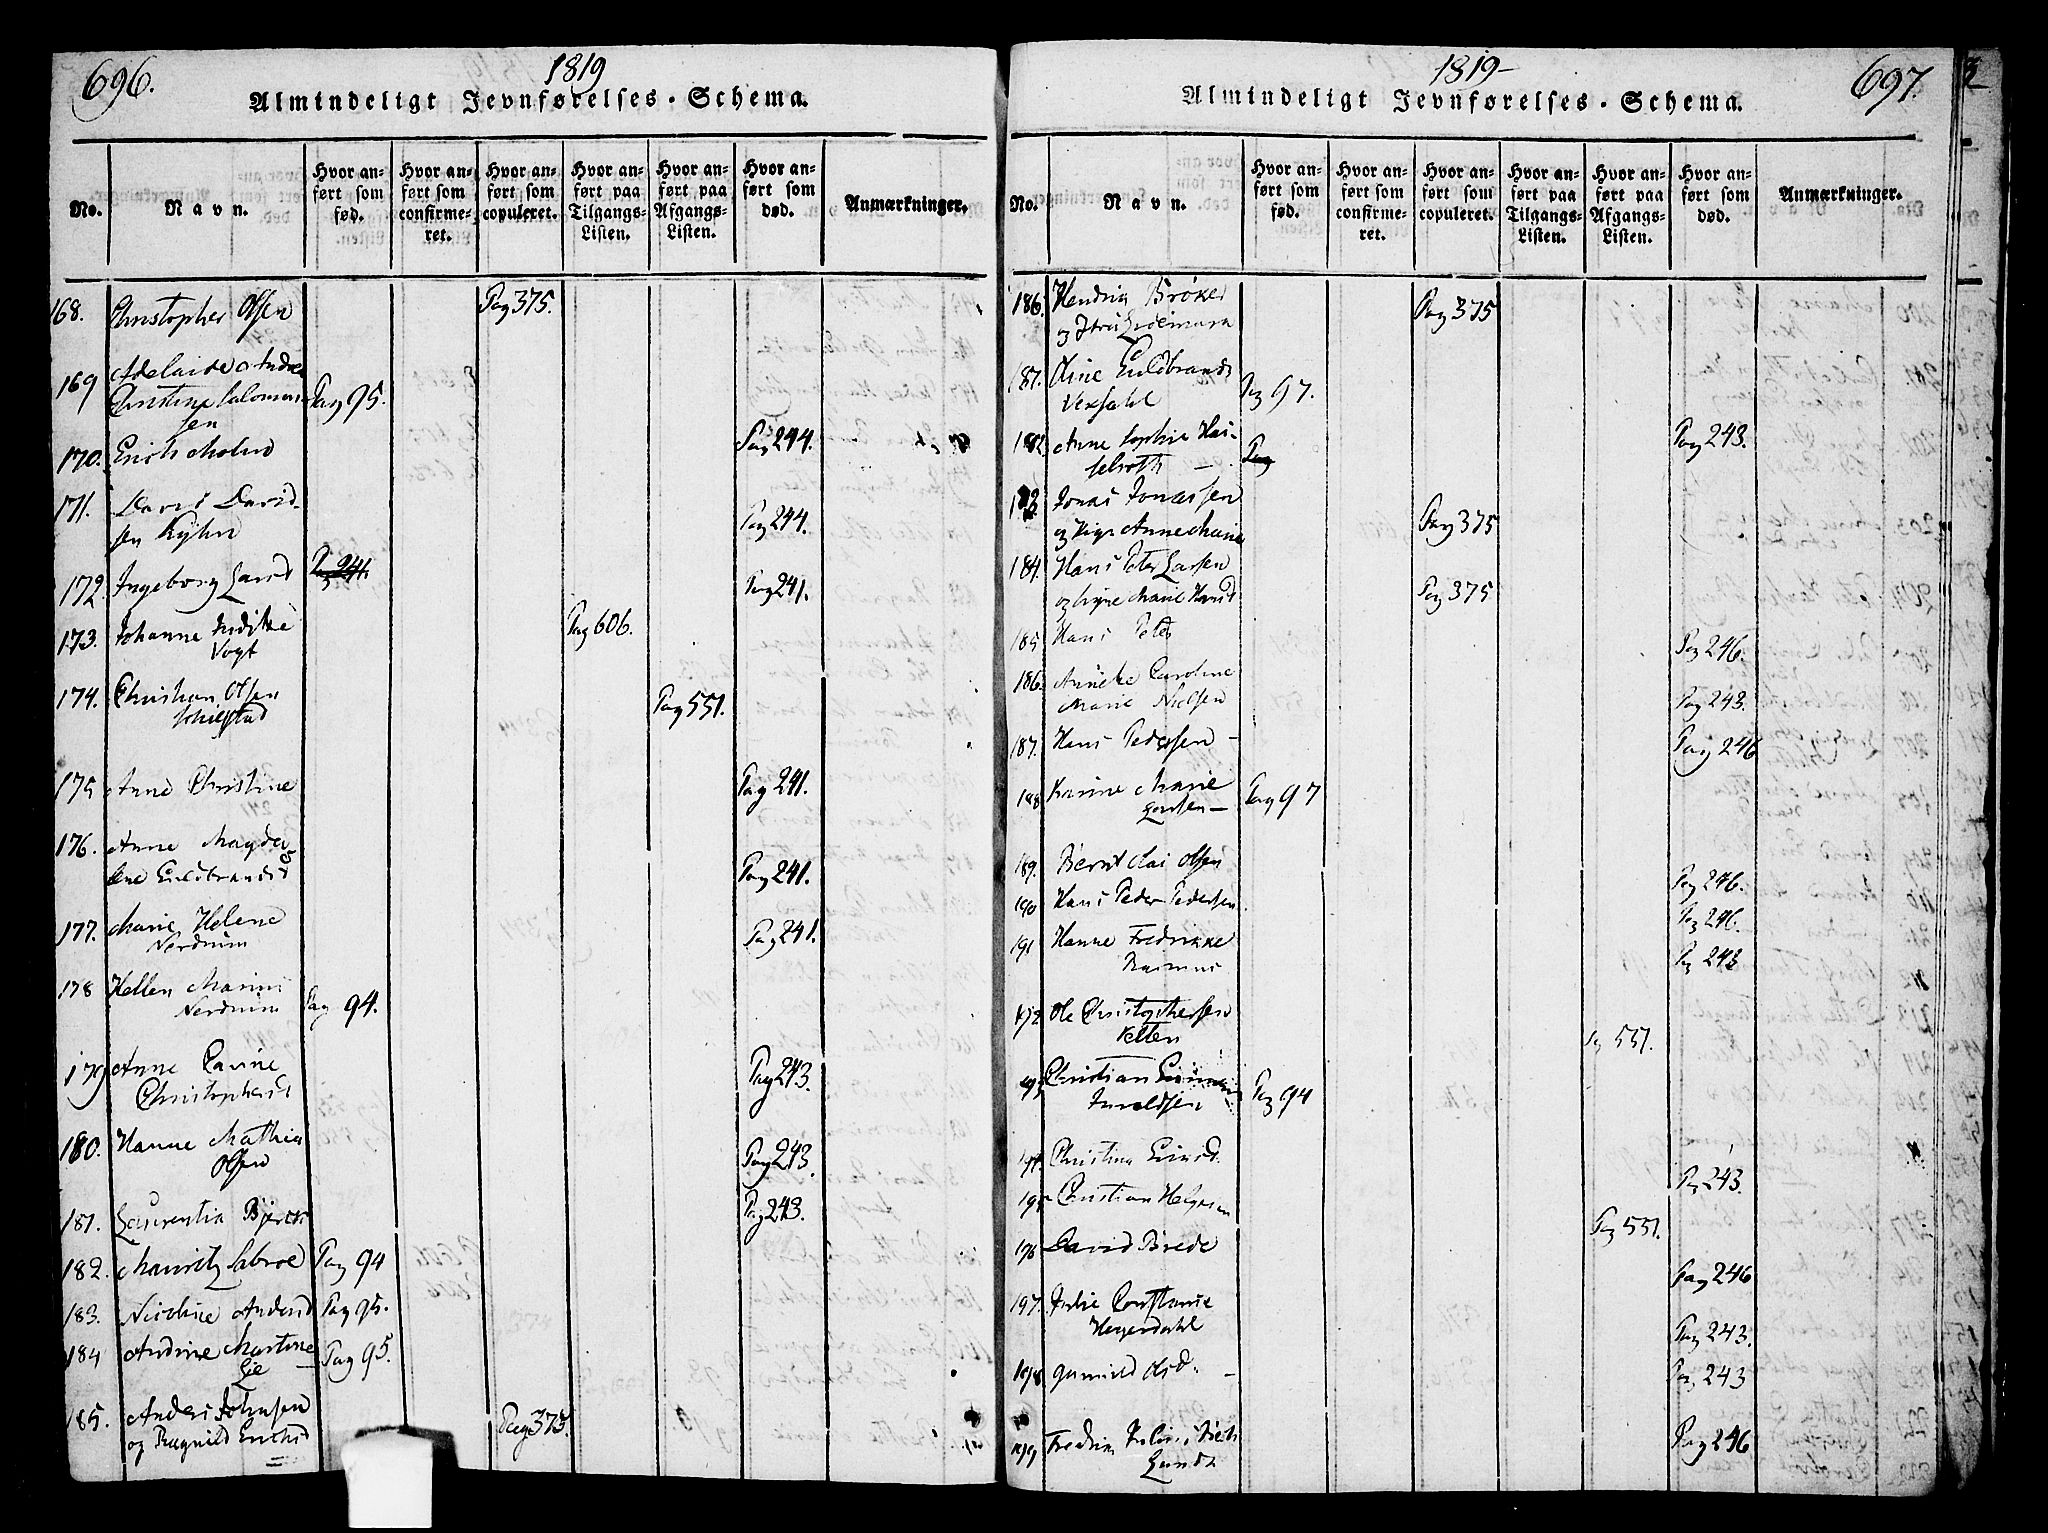 696.
1819
Almindeligt Jevnførelses-Schema.
No.
Navn.
Hvor anført som fød.
Hvor anført som confirmeret.
Hvor anført som copuleret.
Hvor anført paa Tilgangs-Listen.
Hvor anført paa Afgangs-Listen.
Hvor anført som død.
Anmærkninger.
168. Christopher Olsen Pag 375.
169 Adelaide Andrea
Christine Salomon- Pag 95.
sen
170. Erich Molin Pag 244.
171. David David-
sen Kyhn Pag 244.
172. Ingeborg Larsd Pag 241. Pag 241.
173. Johanne
Vogt Pag 606.
174. Christian Olsen
Pag 551.
175 Anne Christine Pag 241.
176. Anne Magda
lene Guldbrandsd Pag 241.
177. Marie Helene
Nerdrum Pag 241.
178 Hellen Marini
Nerdrum Pag 94.
179 Anne Carine
Christophersd Pag 243.
180. Hanne Mathea
Olsen Pag 243.
181. Laurentia Bjerck Pag 243.
182. Mauritz Labroe Pag 94
183. Nicoline Andersd Pag 95.
184 Andine Martine
Lie Pag 95.
185. Anders Johnsen
og Ragnild Erichsd Pag 375.
1819-
697.
Almindeligt Jevnførelses-Schema.
No.
Navn.
Hvor anført som fød.
Hvor anført som confirmeret.
Hvor anført som copuleret.
Hvor anført paa Tilgangs-Listen.
Hvor anført paa Afgangs-Listen.
Hvor anført som død.
Anmærkninger.
186. Hendrich Brøker
og Pag 375
187. Oline Guldbrands
Vexsahl Pag 97.
182 Anne Sophie Has-
selroth - Pag Pag 243.
183 Jonas Jonassen
og Pige Anne Marie Pag 375
184. Hans Peter Larsen
og Signe Marie Hansd Pag 375
185 Hans Peter Pag 246.
186. Annike Caroline
Marie Nielsen Pag 243.
187. Hans Pedersen - Pag 246
188 Karine Marie
Jensen - Pag 97
189. Bernt Olai Olsen Pag 246.
190 Hans Peder Pedersen Pag 246.
191 Hanne Fredrikke
Rasmus Pag 243
192 Ole Christophersen
Vellen Pag 551.
193 Christian
Pag 94
194. Christina Pag 243.
195 Christian Helgesen Pag 551.
196 David Brede Pag 246
197. Julie Constance
Heyerdahl Pag 243.
198. Gunnild Olsd. - Pag 243
199 Fredrich
Lund Pag 246